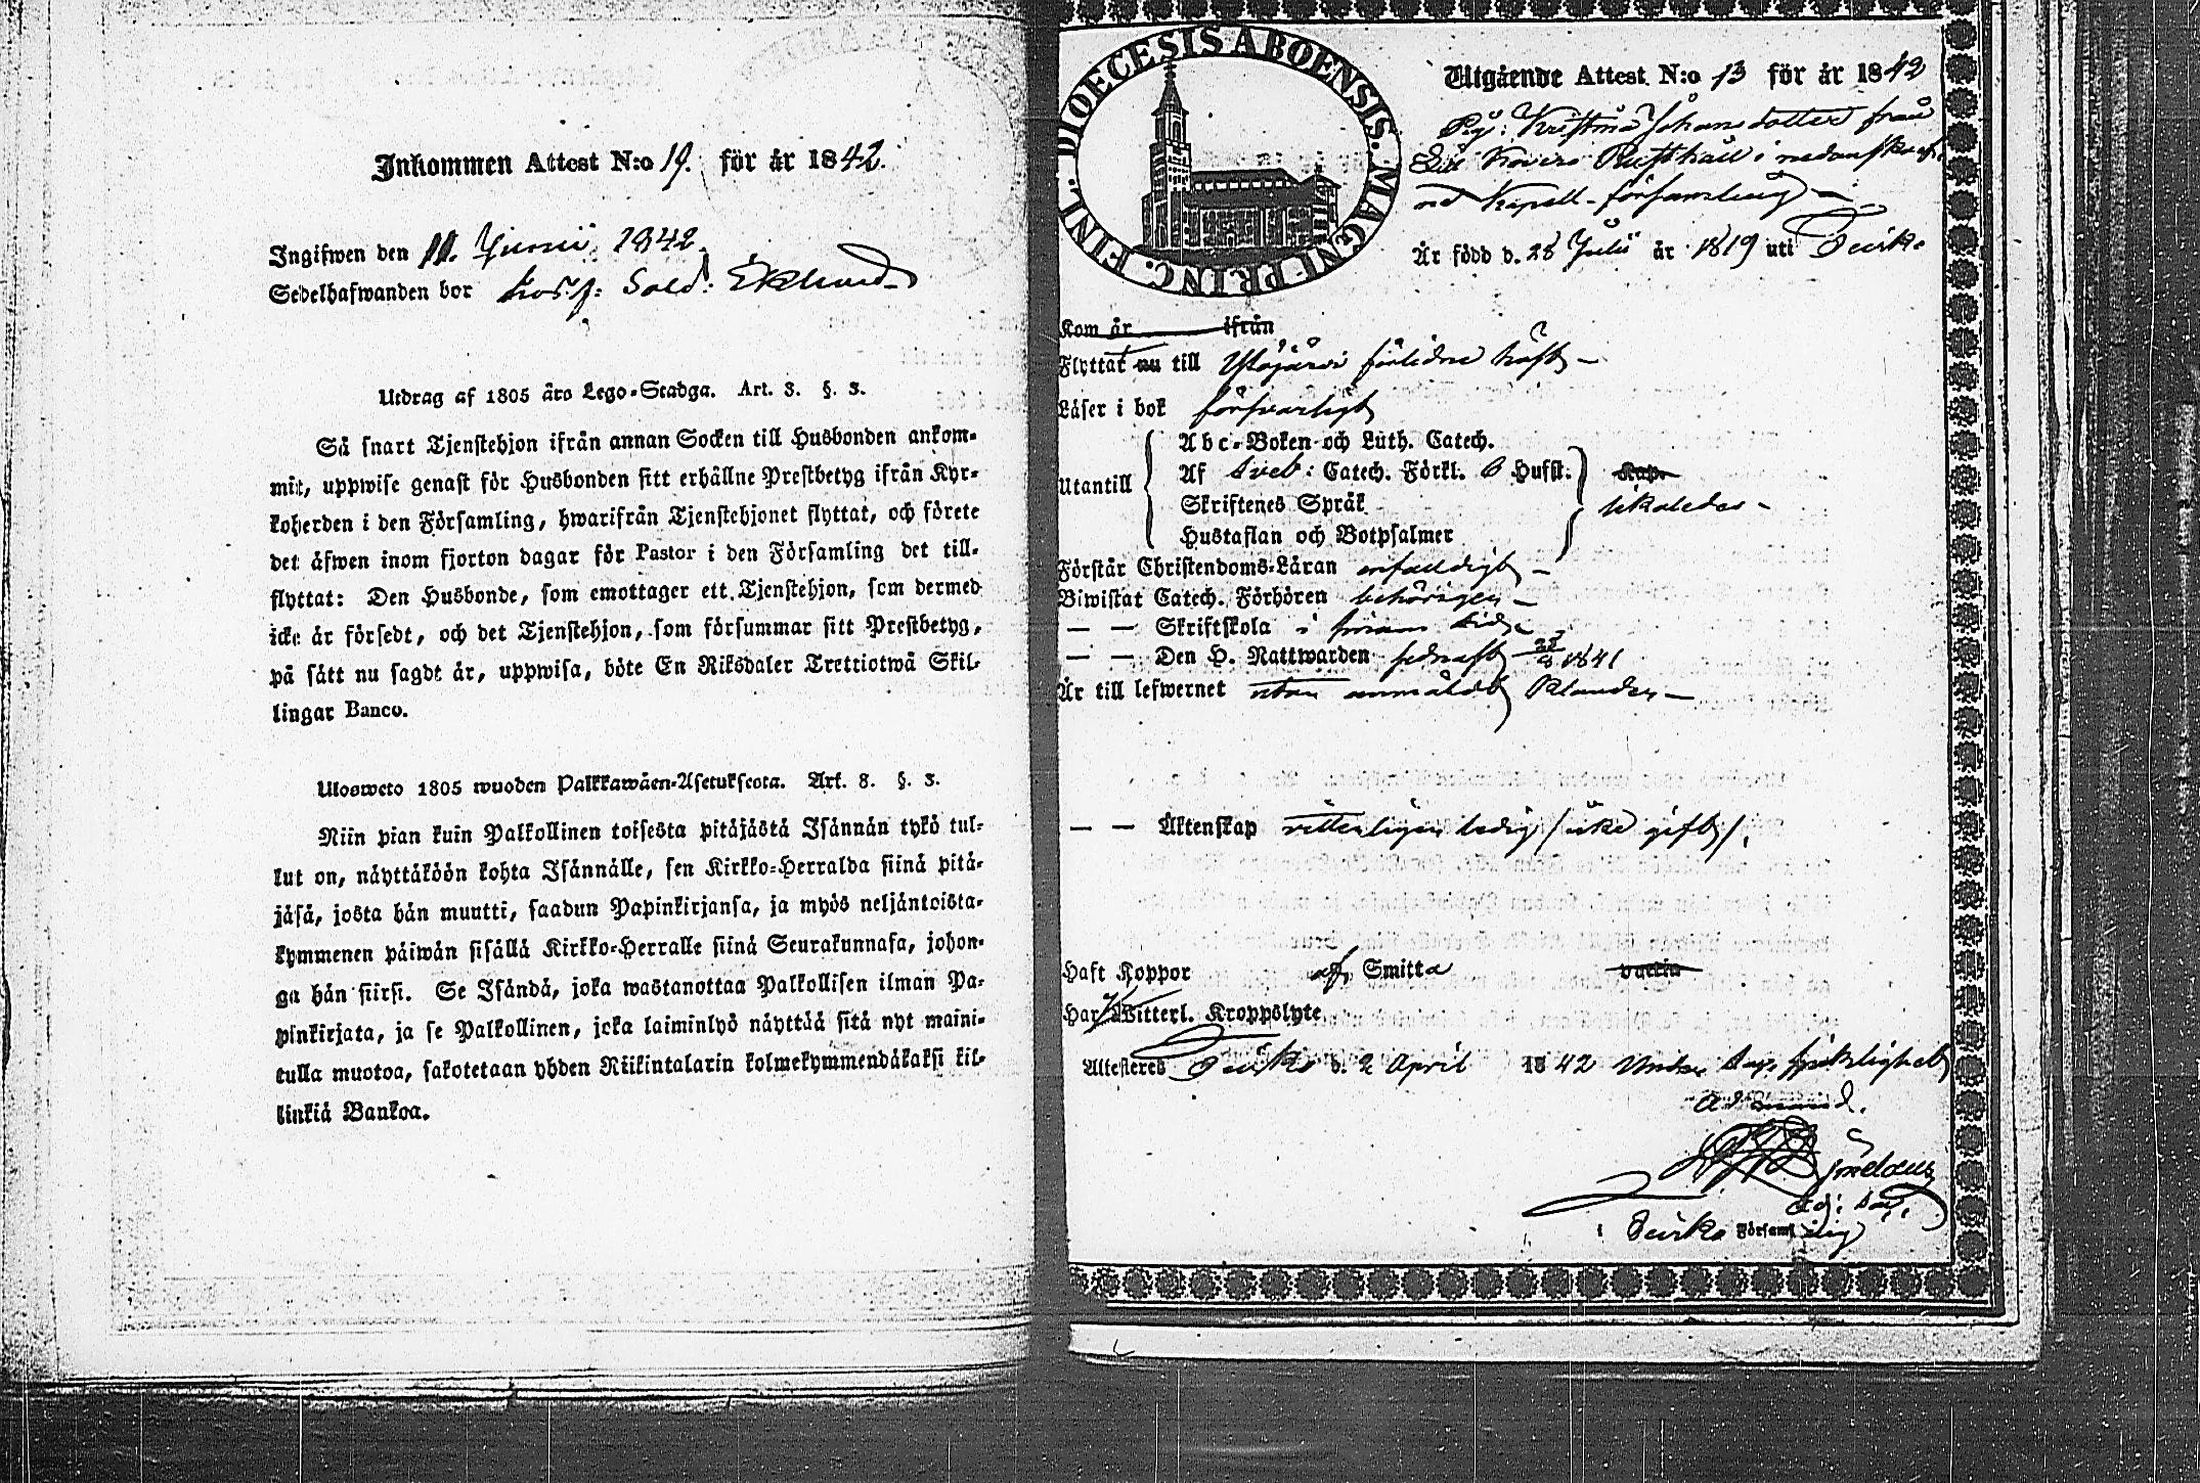 Inkommen Attest N:o 19. för år 1842.
Ingifwen den 11. Junii 1842.
Sedelhafwanden bor hos f: Sold: Eklund
Utdrag af 1805 års Lego-Stadga. Art. 3. §. 3.
Så snart Tjenstehjon ifrån annan Socken till Husbonden ankom-
mit, uppwise genast för Husbonden sitt erhållne Prestbetyg ifrån Kyr-
koherden i den Församling, hwarifrån Tjenstehjonet flyttat, och förete
det äfwen inom fjorton dagar för Pastor i den Församling det till-
flyttat: Den Husbonde, som emottager ett Tjenstehjon, som dermed
icke är försedt, och det Tjenstehjon, som försummar sitt Prestbetyg,
på sätt nu sagdt är, uppwisa, böte En Riksdaler Trettiotwå Skil-
lingar Banco.
Ulosweto 1805 wuoden Palkkawäen-Asetuksesta. Art. 8. §. 3.
Niin pian kuin Palkollinen toisesta pitäjästä Isännän tykö tul-
lut on, näyttäköön kohta Isännälle, sen Kirkko-Herralda siinä pitä-
jäsä, josta hän muutti, saadun Papinkirjansa, ja myös neljäntoista-
kymmenen päiwän sisällä Kirkko-Herralle siinä Seurakunnasa, johon-
ga hän siirsi. Se Isändä, joka wastanottaa Palkollisen ilman Pa-
pinkirjata, ja se Palkollinen, joka laiminlyö näyttää sitä nyt maini-
tulla muotoa, sakotetaan yhden Riikintalarin kolmekymmendäkaksi kil-
linkiä Bankoa.
DIOECESIS ABOENSIS. MAGNI PRINC. FINL.
Utgående Attest. N:o 13 för år 1842
Pig: Kristina Johansdotter från
Rusthåll i nedanskref-
ne Kapell-församling
Är född d. 28 Julii år 1819 uti
Kom år ifrån
Flyttat nu till Ylöjärvi förlidne höst
Läser i bok försvarligt
Utantill
Abc-Boken och Luth. Catech.
Af Sveb: Catech. Förkl. O Husfl. Kap.
Skriftenes Språk likaledes
Hustaflan och Botpsalmer
Förstår Christendoms-Läran enfaldigt
Biwistat Catech. Förhören behörigen
— — Skriftskola i sinom tid
— — Den H. Nattwarden sednast 1841
Är till lefwernet utan anmäldt klander
— — Äktenskap vitterligen ledig / icke gift /.
Haft Koppor af Smitta vaccin
Har Witterl. Kroppslyte
Attesteres d. 2 April 1842 Under
i Församling